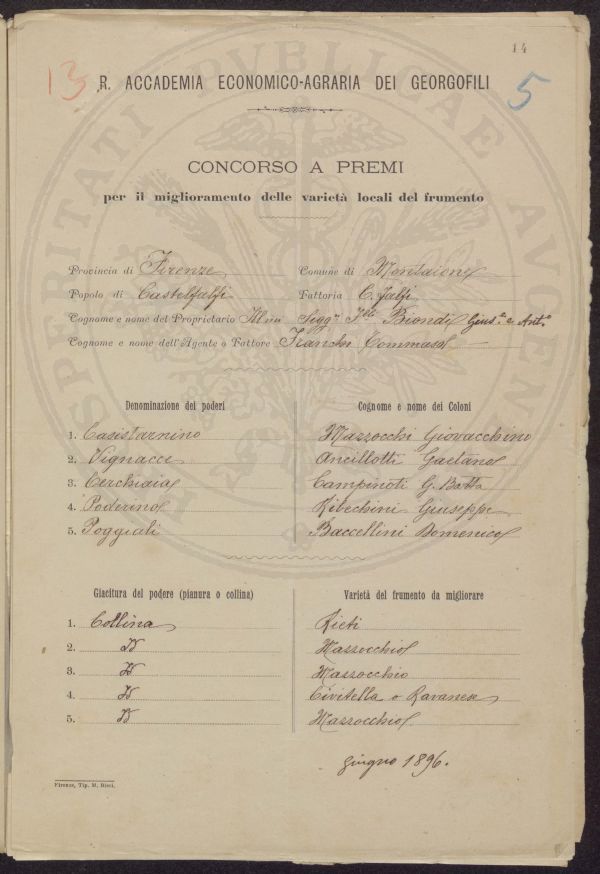 14
13
R. ACCADEMIA ECONOMICO-AGRARIA DEI GEORGOFILI
5
CONCORSO A PREMI
per il miglioramento delle varietà locali del frumento
Provincia di Firenze Comune di Montaione
Popolo di Castelfalfi Fattoria C. falfi
Cognome e nome del Proprietario Sigg.ri Biondi Gius.e e Ant.o
Cognome e nome dell'Agente o Fattore Franchi Tommaso
Denominazione dei poderi Cognome e nome dei Coloni
1. Casistarnino Mazzocchi Giovacchino
2. Vignacce Ancillotti Gaetano
3. Cerchiaia Campinoti G. Batta
4. Poderino Ribechini Giuseppe
5. Poggiali Baccellini Domenico
Giacitura del podere (pianura o collina) Varietà del frumento da migliorare
1. Collina Rieti
2. D Mazzocchio
3. D Mazzocchio
4. D Civitella o Ravanese
5. D Mazzocchio
giugno 1896.
Firenze, Tip. M. Ricci.
PROSPERITATI PVBLICAE AVGENDAE